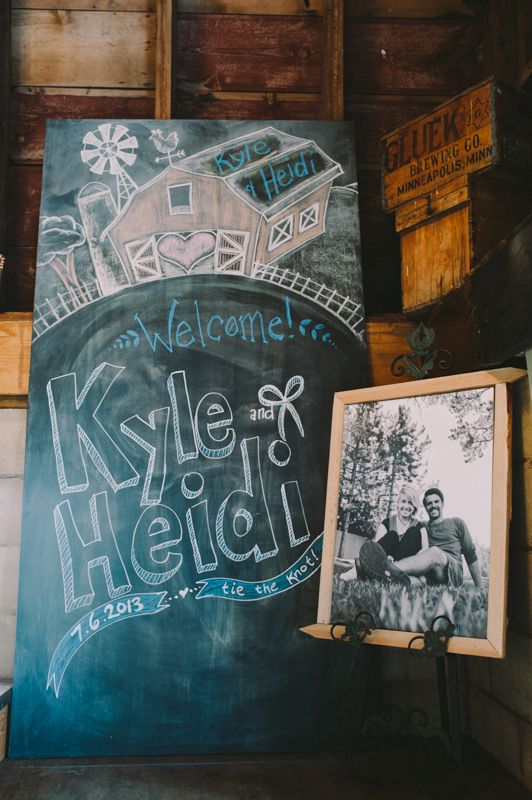 Kyle
& Heidi
Welcome!
Kyle
and
Heidi
7.6.2013 tie the Knot!
GLUEK
BREWING CO.
MINNEAPOLIS, MINN